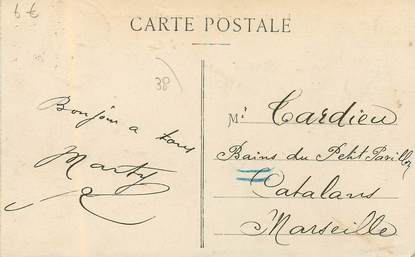 6 €
CARTE POSTALE
38
Bonjour a tous
Marty
Mr Tardieu
Bains du Petit Pavillon
Catalans
Marseille